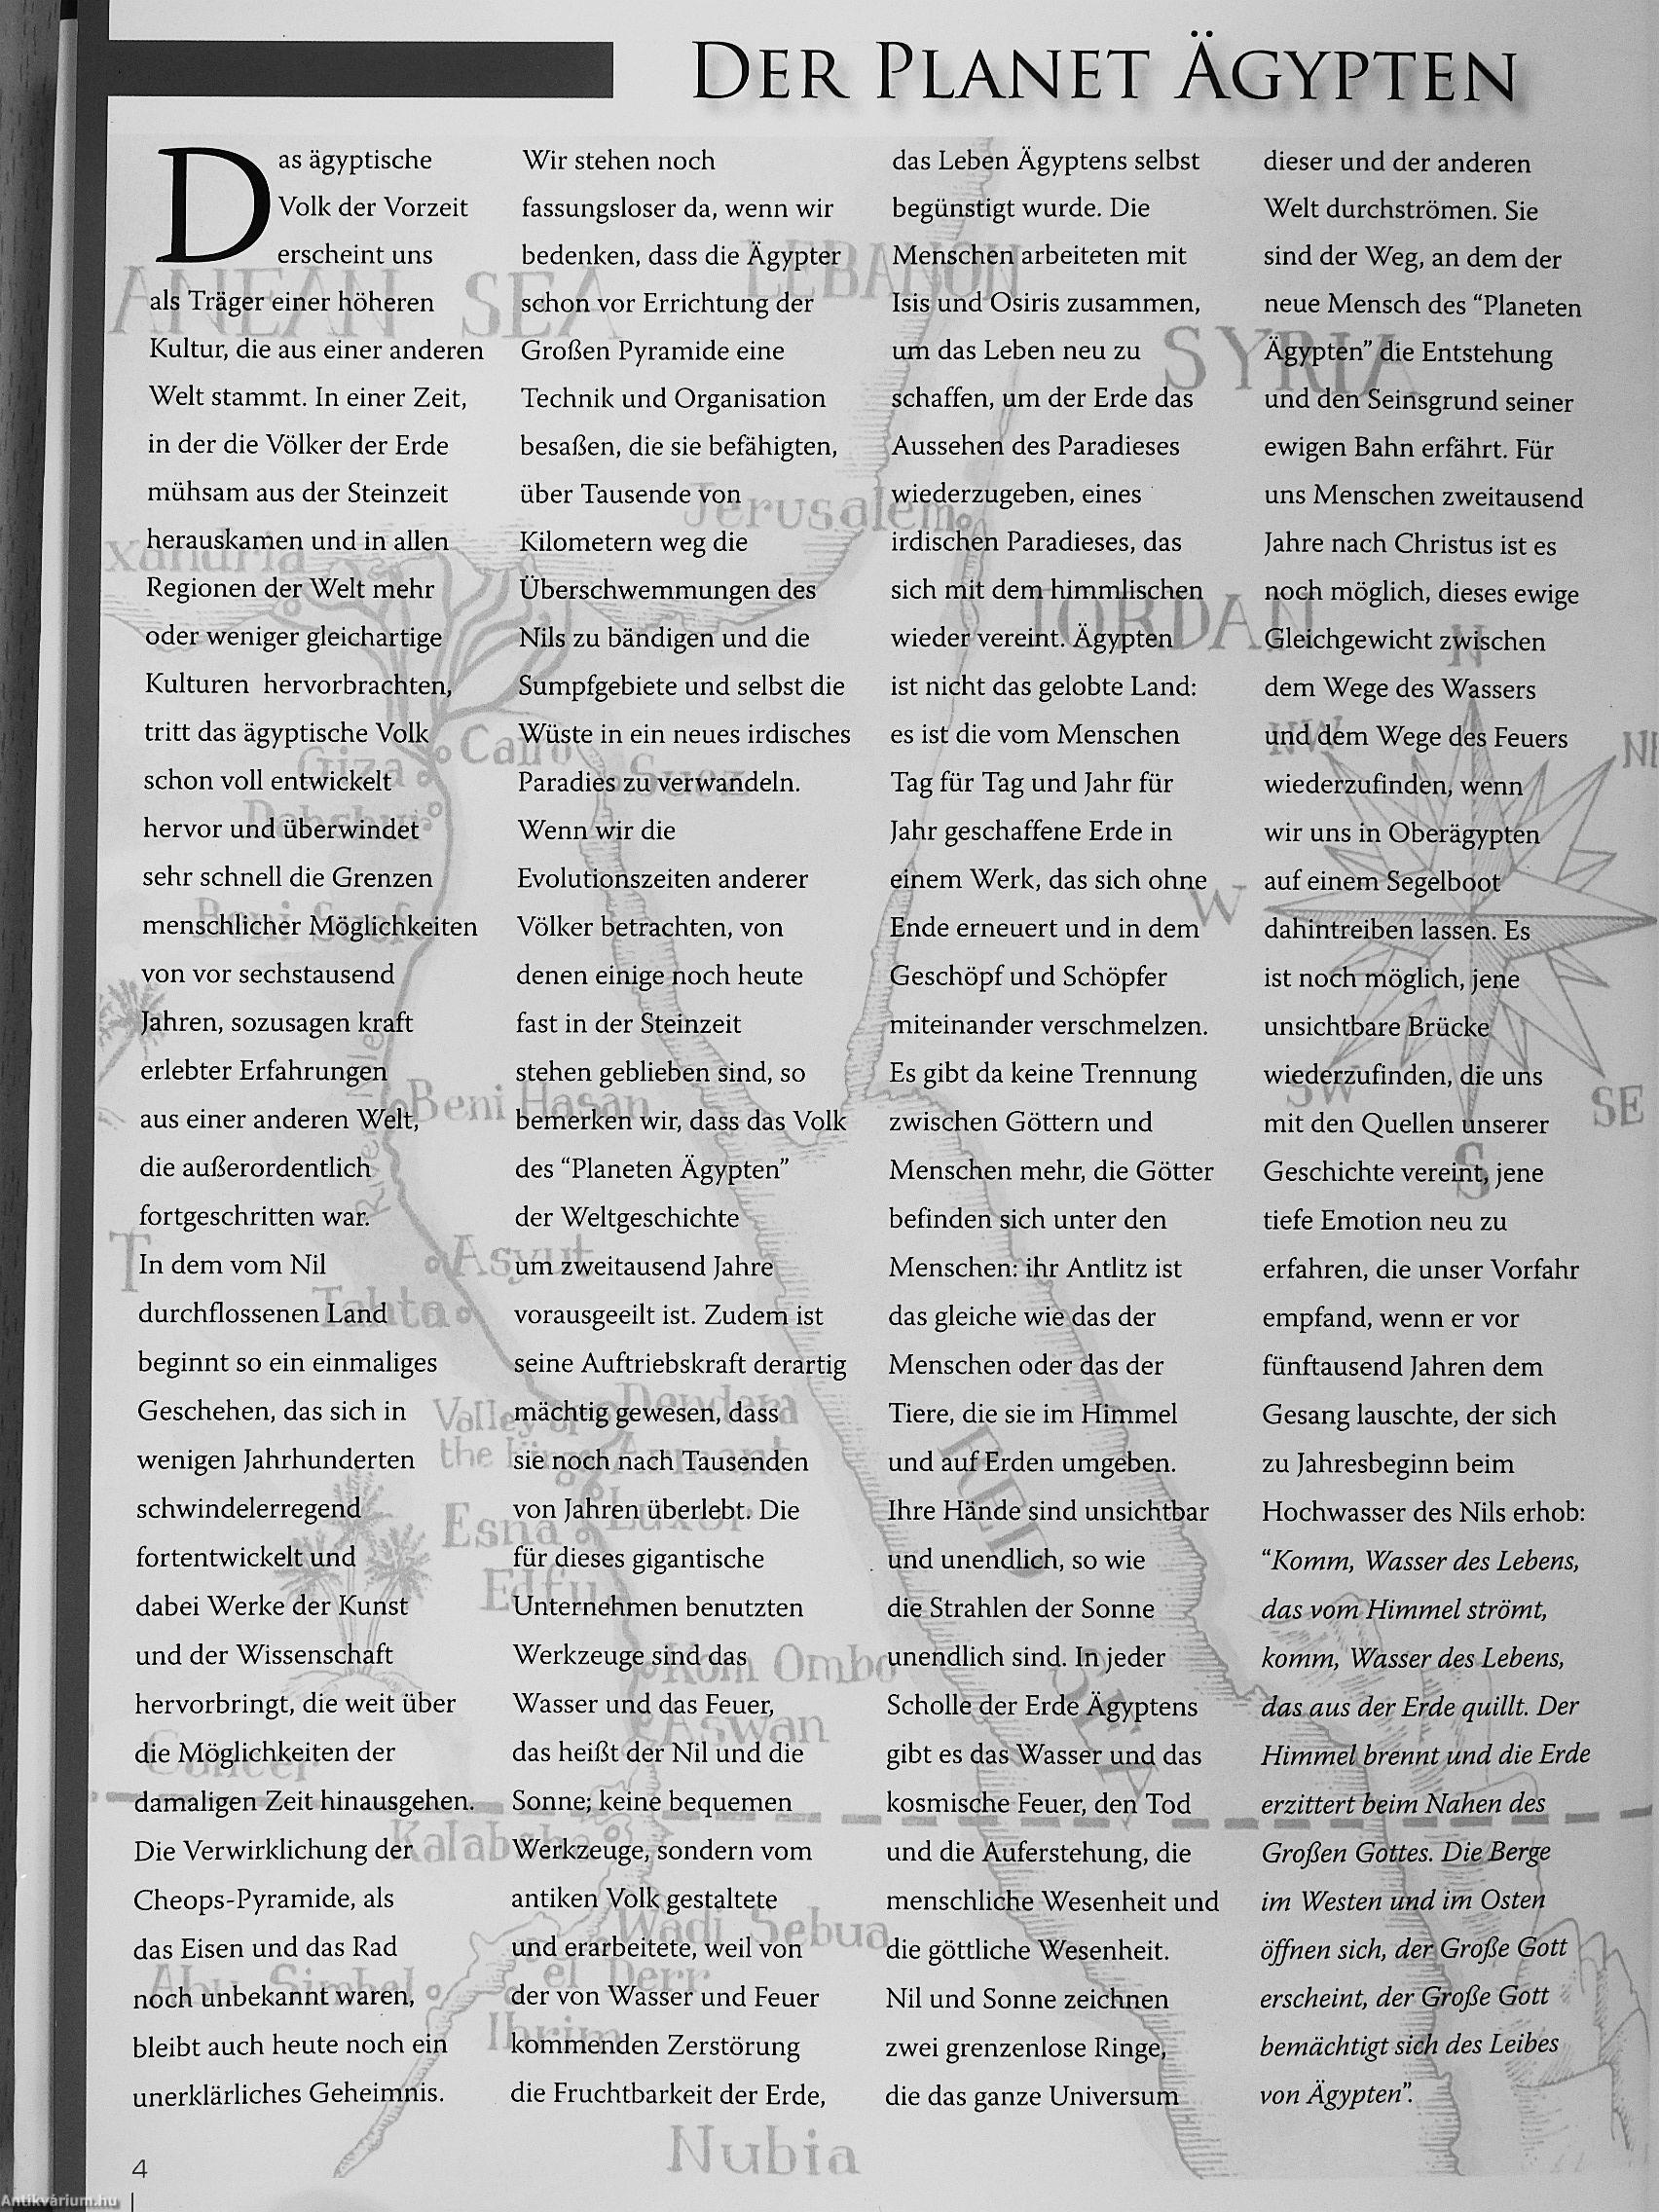 DER PLANET ÄGYPTEN
Das ägyptische
Volk der Vorzeit
erscheint uns
als Träger einer höheren
Kultur, die aus einer anderen
Welt stammt. In einer Zeit,
in der die Völker der Erde
mühsam aus der Steinzeit
herauskamen und in allen
Regionen der Welt mehr
oder weniger gleichartige
Kulturen hervorbrachten,
tritt das ägyptische Volk
schon voll entwickelt
hervor und überwindet
sehr schnell die Grenzen
menschlicher Möglichkeiten
von vor sechstausend
Jahren, sozusagen kraft
erlebter Erfahrungen
aus einer anderen Welt,
die außerordentlich
fortgeschritten war.
In dem vom Nil
durchflossenen Land
beginnt so ein einmaliges
Geschehen, das sich in
wenigen Jahrhunderten
schwindelerregend
fortentwickelt und
dabei Werke der Kunst
und der Wissenschaft
hervorbringt, die weit über
die Möglichkeiten der
damaligen Zeit hinausgehen.
Die Verwirklichung der
Cheops-Pyramide, als
das Eisen und das Rad
noch unbekannt waren,
bleibt auch heute noch ein
unerklärliches Geheimnis.
Wir stehen noch
fassungsloser da, wenn wir
bedenken, dass die Ägypter
schon vor Errichtung der
Großen Pyramide eine
Technik und Organisation
besaßen, die sie befähigten,
über Tausende von
Kilometern weg die
Überschwemmungen des
Nils zu bändigen und die
Sumpfgebiete und selbst die
Wüste in ein neues irdisches
Paradies zu verwandeln.
Wenn wir die
Evolutionszeiten anderer
Völker betrachten, von
denen einige noch heute
fast in der Steinzeit
stehen geblieben sind, so
bemerken wir, dass das Volk
des “Planeten Ägypten”
der Weltgeschichte
um zweitausend Jahre
vorausgeeilt ist. Zudem ist
seine Auftriebskraft derartig
mächtig gewesen, dass
sie noch nach Tausenden
von Jahren überlebt. Die
für dieses gigantische
Unternehmen benutzten
Werkzeuge sind das
Wasser und das Feuer,
das heißt der Nil und die
Sonne; keine bequemen
Werkzeuge, sondern vom
antiken Volk gestaltete
und erarbeitete, weil von
der von Wasser und Feuer
kommenden Zerstörung
die Fruchtbarkeit der Erde,
das Leben Ägyptens selbst
begünstigt wurde. Die
Menschen arbeiteten mit
Isis und Osiris zusammen,
um das Leben neu zu
schaffen, um der Erde das
Aussehen des Paradieses
wiederzugeben, eines
irdischen Paradieses, das
sich mit dem himmlischen
wieder vereint. Ägypten
ist nicht das gelobte Land:
es ist die vom Menschen
Tag für Tag und Jahr für
Jahr geschaffene Erde in
einem Werk, das sich ohne
Ende erneuert und in dem
Geschöpf und Schöpfer
miteinander verschmelzen.
Es gibt da keine Trennung
zwischen Göttern und
Menschen mehr, die Götter
befinden sich unter den
Menschen: ihr Antlitz ist
das gleiche wie das der
Menschen oder das der
Tiere, die sie im Himmel
und auf Erden umgeben.
Ihre Hände sind unsichtbar
und unendlich, so wie
die Strahlen der Sonne
unendlich sind. In jeder
Scholle der Erde Ägyptens
gibt es das Wasser und das
kosmische Feuer, den Tod
und die Auferstehung, die
menschliche Wesenheit und
die göttliche Wesenheit.
Nil und Sonne zeichnen
zwei grenzenlose Ringe,
die das ganze Universum
dieser und der anderen
Welt durchströmen. Sie
sind der Weg, an dem der
neue Mensch des “Planeten
Ägypten” die Entstehung
und den Seinsgrund seiner
ewigen Bahn erfährt. Für
uns Menschen zweitausend
Jahre nach Christus ist es
noch möglich, dieses ewige
Gleichgewicht zwischen
dem Wege des Wassers
und dem Wege des Feuers
wiederzufinden, wenn
wir uns in Oberägypten
auf einem Segelboot
dahintreiben lassen. Es
ist noch möglich, jene
unsichtbare Brücke
wiederzufinden, die uns
mit den Quellen unserer
Geschichte vereint, jene
tiefe Emotion neu zu
erfahren, die unser Vorfahr
empfand, wenn er vor
fünftausend Jahren dem
Gesang lauschte, der sich
zu Jahresbeginn beim
Hochwasser des Nils erhob:
“Komm, Wasser des Lebens,
das vom Himmel strömt,
komm, Wasser des Lebens,
das aus der Erde quillt. Der
Himmel brennt und die Erde
erzittert beim Nahen des
Großen Gottes. Die Berge
im Westen und im Osten
öffnen sich, der Große Gott
erscheint, der Große Gott
bemächtigt sich des Leibes
von Ägypten”.
ANEAN SEA
LEBANON
SYRIA
Jerusalem
xandria
JORDAN
Cairo
Giza
Suez
Dahshur
Beni Suef
N
NW
W
SW
S
SE
River Nile
Beni Hasan
Asyut
Tahta
Dendera
Valley of
the Kings
Armant
Luxor
Esna
Edfu
Kom Ombo
Aswan
RED SEA
Cancer
Kalabsha
Wadi Sebua
el Derr
Abu Simbel
Ibrim
Nubia
4
Antikvárium.hu